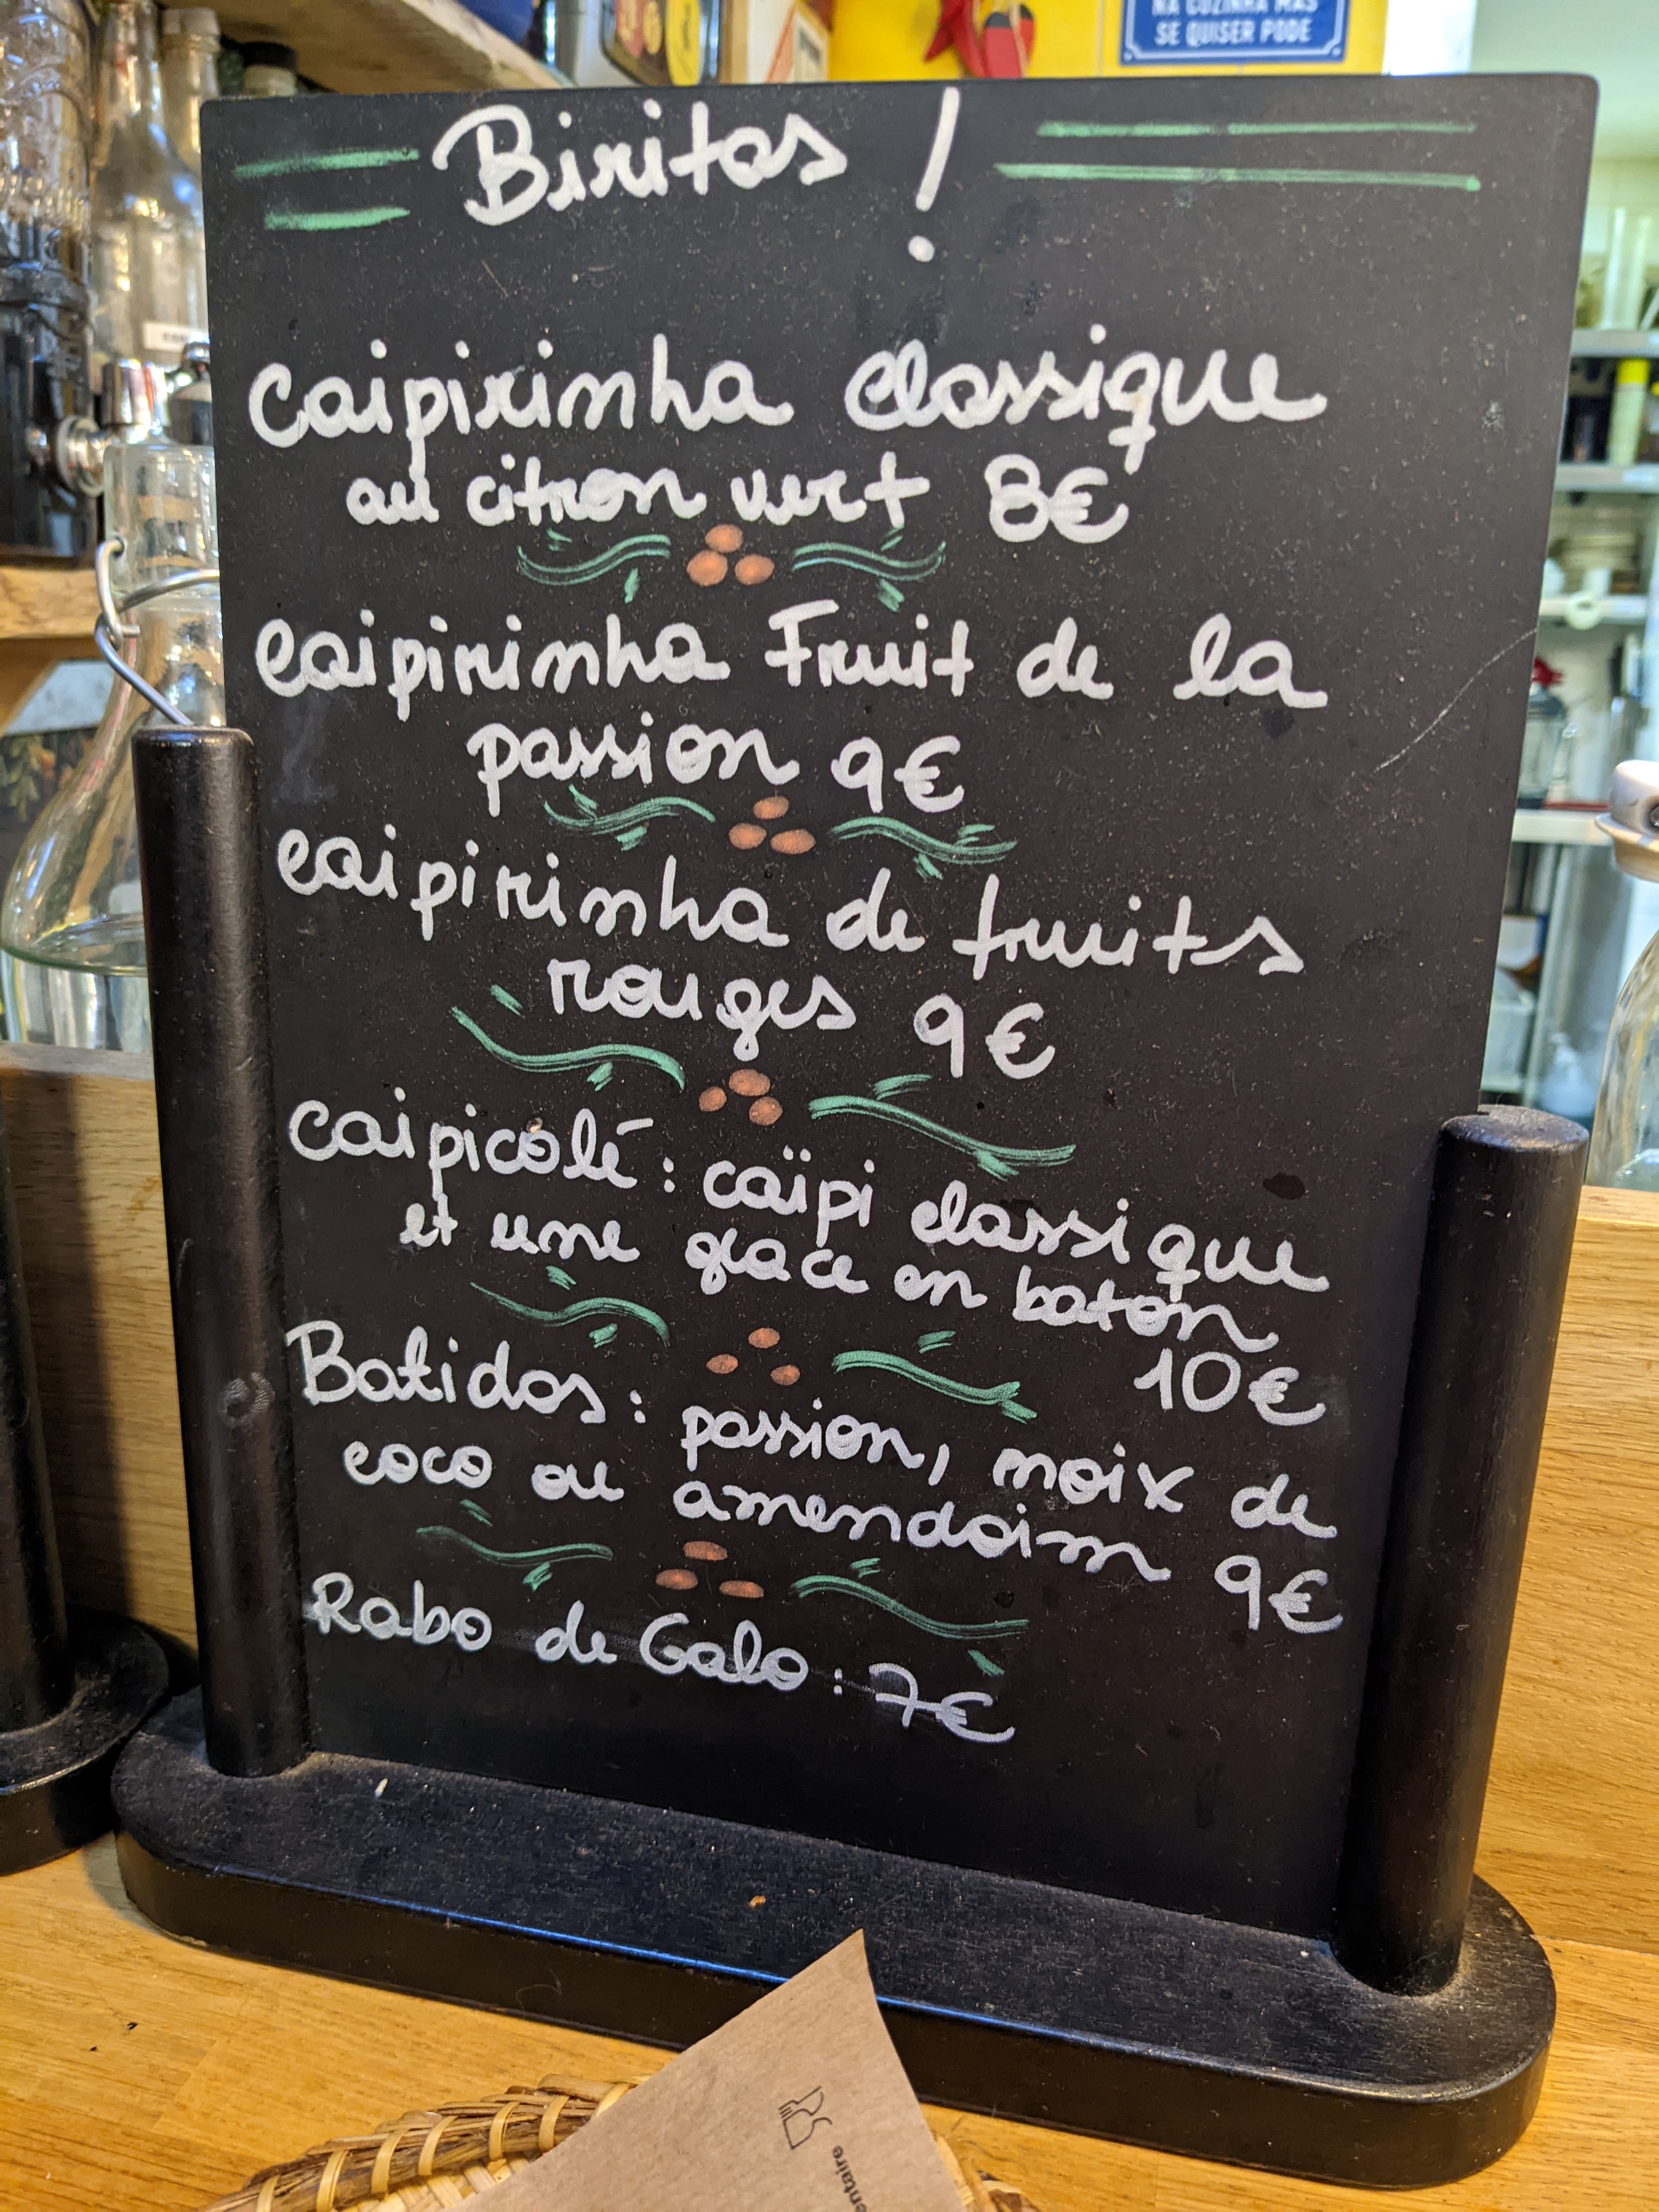 NA COZINHA MAS
SE QUISER PODE
Biritas !
Caipirinha classique
au citron vert 8€
Caipirinha Fruit de la
passion 9€
Caipirinha de fruits
rouges 9€
Caipicolé : caïpi classique
et une glace en baton
10€
Batidas : passion, noix de
coco ou amendoim 9€
Rabo de Galo : 7€
entaire